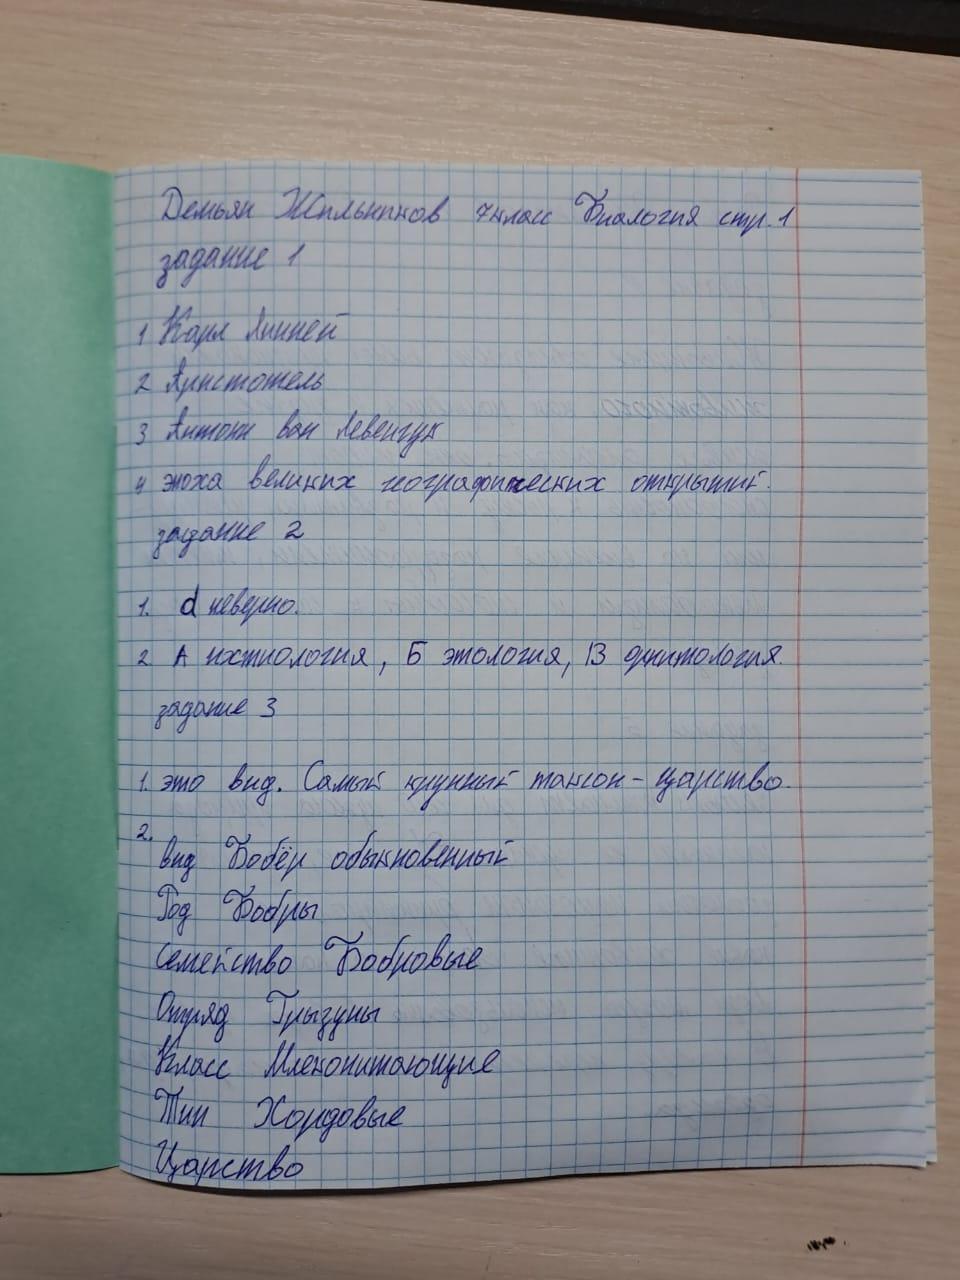 Демьян Жильников 7класс Биалогия стр.1
задание 1
1 Карл Линней
2 Аристотель
3 Антони ван Левенгук
4 эпоха великих географических открытий.
задание 2
1. d неверно.
2. А ихтиология, Б этология, В орнитология.
задание 3
1. это вид. Самый крупный таксон - царство.
2.
Вид Бобёр обыкновенный
Род Бобры
Семейство Бобровые
Отряд Грызуны
Класс Млекопитающие
Тип Хордовые
Царство